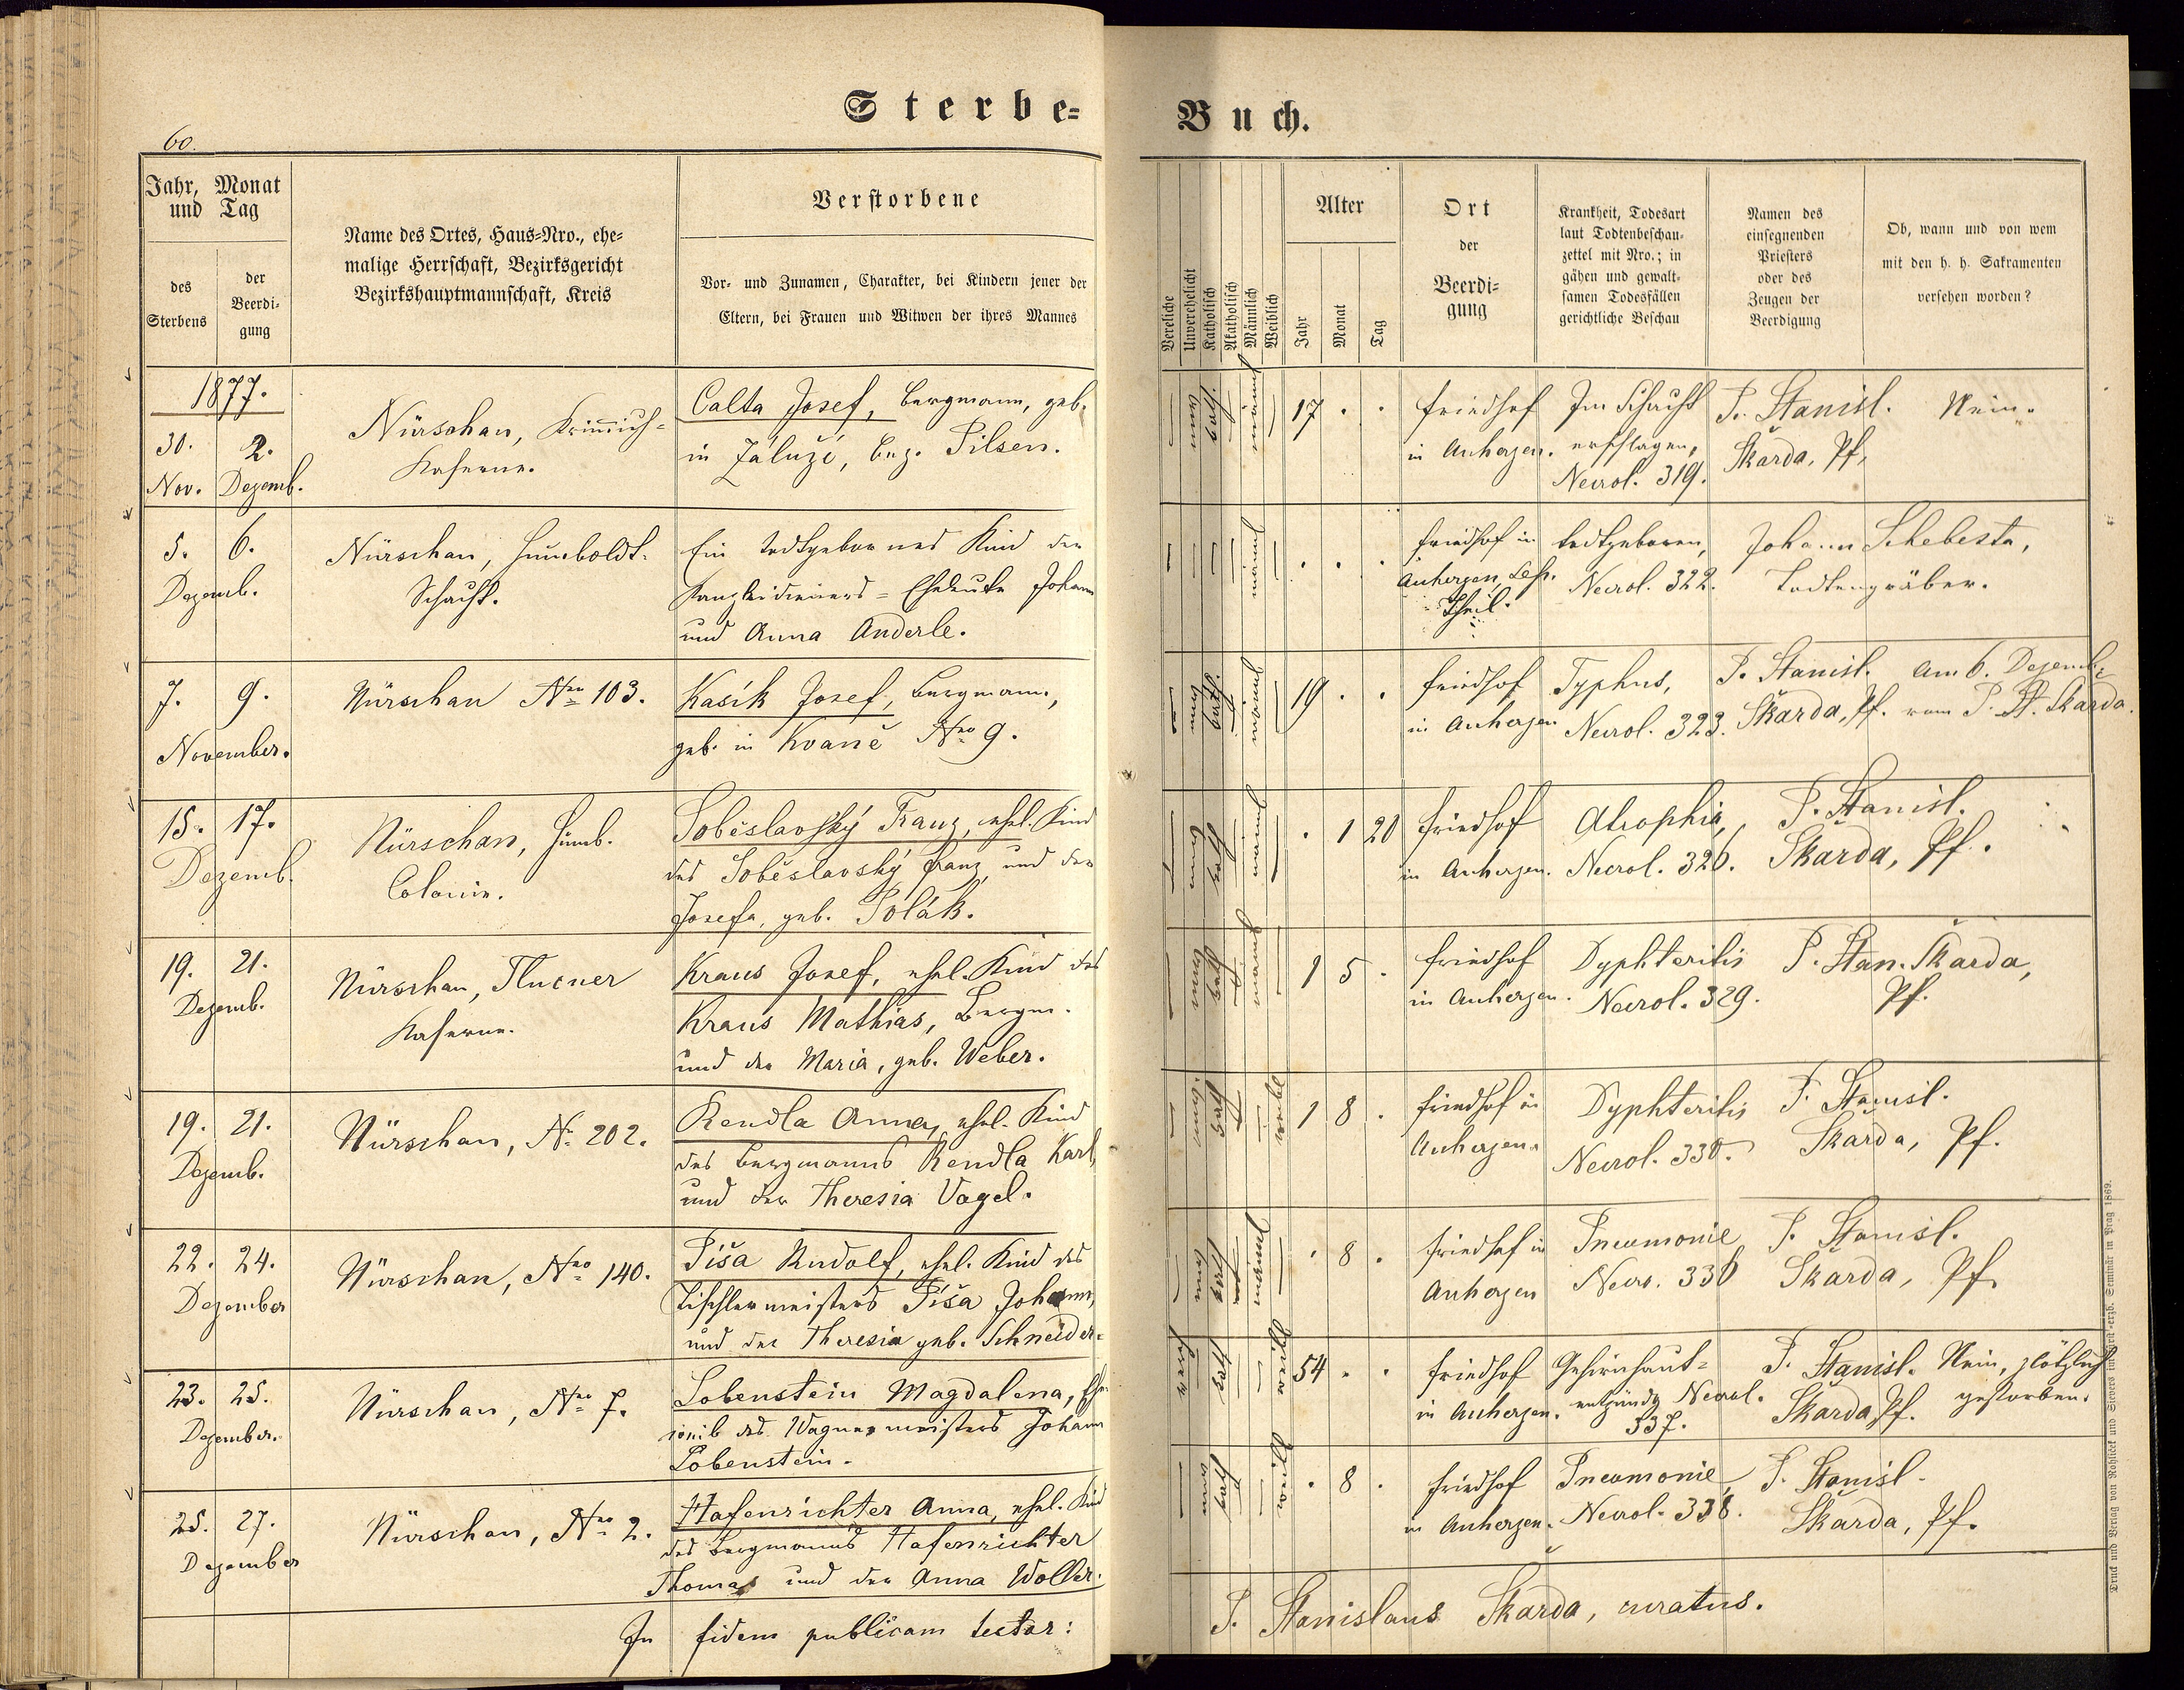 Sterbe-
Buch.
60.
Jahr, Monat
und Tag
des
Sterbens
der
Beerdi-
gung
Name des Ortes, Haus-Nro., ehe-
malige Herrschaft, Bezirksgericht
Bezirkshauptmannschaft, Kreis
Verstorbene
Vor- und Zunamen, Charakter, bei Kindern jener der
Eltern, bei Frauen und Witwen der ihres Mannes
Unverehelicht
Katholisch
Akatholisch
Männlich
Weiblich
Alter
Jahr
Monat
Tag
Ort
der
Beerdi-
gung
Krankheit, Todesart
laut Todtenbeschau-
zettel mit Nro.; in
gähen und gewalt-
samen Todesfällen
gerichtliche Beschau
Namen des
einsegnenden
Priesters
oder des
Zeugen der
Beerdigung
Ob, wann und von wem
mit den h. h. Sakramenten
versehen worden?
1877.
30. 2.
Nov. Dezemb.
Nürschan, Krimich-
Kaserne.
Calta Josef, Bergmann, geb.
in Záluží, Bez. Pilsen.
17 . .
Friedhof
in Auherzen.
Im Schacht
erschlagen,
Necrol. 319.
P. Stanisl.
Škarda, Pf.
Nein.
5. 6.
Dezemb.
Nürschan, Humboldt-
Schacht.
Ein todtgebornes Kind der
Kanzleidieners-Eheleute Johann
und Anna Anderle.
. . .
Friedhof in
Auherzen,
Theil.
todtgeboren,
Necrol. 322.
Johann Schebesta,
Todtengräber.
7. 9.
November.
Nürschan Nro 103.
Kasík Josef, Bergmann,
geb. in Kvaně Nro 9.
19 . .
Friedhof
in Auherzen
Typhus,
Necrol. 323.
P. Stanisl.
Škarda, Pf.
am 6. Dezemb.
vom P. St. Škarda.
15. 17.
Dezemb.
Nürschan, Humb.
Colonie.
Soběslavský Franz, ehel. Kind
des Soběslavský Franz, und der
Josefa, geb. Polák.
. 1 20
Friedhof
in Auherzen.
Atrophia,
Necrol. 326.
P. Stanisl.
Škarda, Pf.
19. 21.
Dezemb.
Nürschan, Tlucner
Kaserne.
Kraus Josef, ehel. Kind des
Kraus Mathias, Bergm.
und der Maria, geb. Weber.
1 5 .
Friedhof
in Auherzen.
Dyphteritis
Necrol. 329.
P. Stan. Škarda,
Pf.
19. 21.
Dezemb.
Nürschan, N. 202.
Rendla Anna, ehel. Kind
des Bergmanns Rendla Karl,
und der Theresia Vogel.
1 8 .
Friedhof in
Auherzen.
Dyphteritis
Necrol. 330.
P. Stanisl.
Škarda, Pf.
22. 24.
Dezember
Nürschan, Nro 140.
Píša Rudolf, ehel. Kind des
Tischlermeisters Píša Johann,
und der Theresia geb. Schneider.
. 8 .
Friedhof in
Auherzen
Pneumonie
Necro. 336
P. Stanisl.
Škarda, Pf.
23. 25.
Dezember.
Nürschan, Nro 7.
Lobenstein Magdalena, Ehe-
weib des Wagnermeisters Johann
Lobenstein.
54 . .
Friedhof
in Auherzen.
Gehirnhaut-
entzündg Necrol.
337.
P. Stanisl.
Škarda Pf.
Nein, plötzlich
gestorben.
25. 27.
Dezember
Nürschan, Nro 2.
Hafenrichter Anna, ehel. Kind
des Bergmanns Hafenrichter
Thomas und der Anna Woller.
. 8 .
Friedhof
in Auherzen.
Pneumonie,
Necrol. 338.
P. Stanisl.
Škarda, Pf.
In fidem publicam testor:
P. Stanislaus Škarda, curatus.